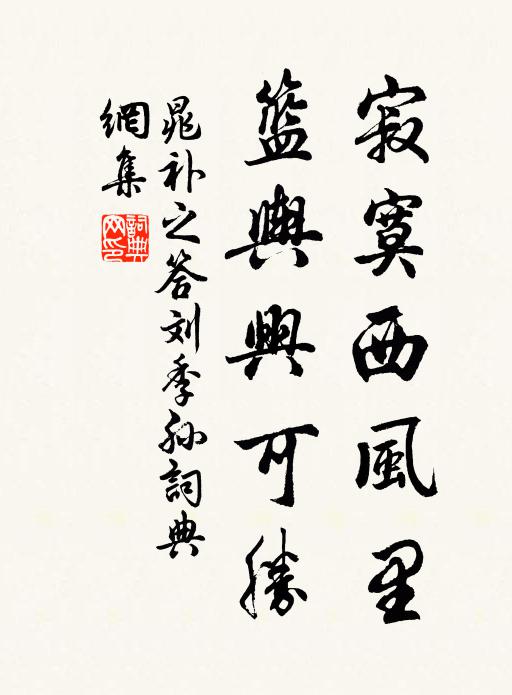 寂寞西風里
籃輿興可勝
晁补之答刘季孙詞典
網集
詞典網印